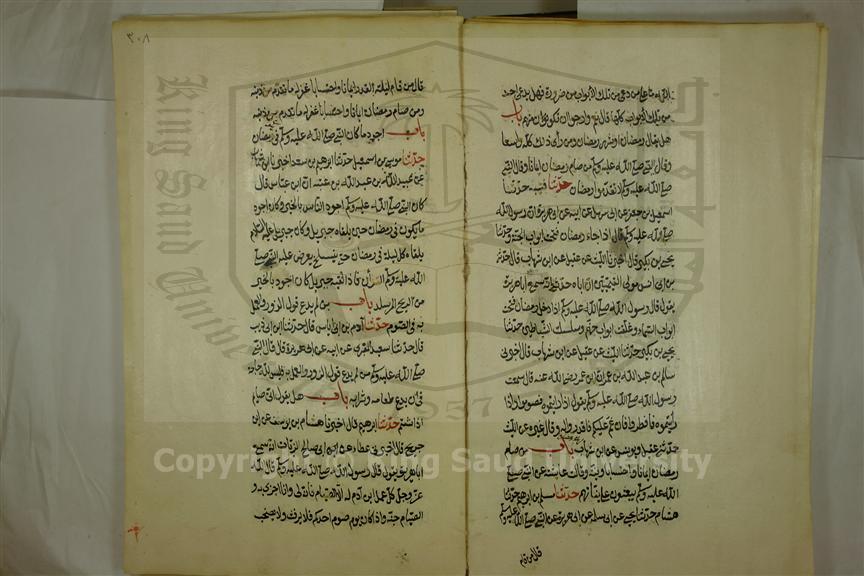 الله ما على من دعي من تلك الأبواب من ضرورة فهل يدعى احد
من تلك الأبواب كلها قال نعم وارجو ان تكون منهم باب
هل يقال رمضان او شهر رمضان ومن رأى ذلك كله واسعا
وقال النبي صلى الله عليه وسلم من صام رمضان ايمانا وقال النبي
صلى الله عليه وسلم لا تقدموا رمضان حدثنا قتيبة حدثنا
اسمعيل بن جعفر عن ابي سهيل عن ابيه عن ابي هريرة ان رسول الله
صلى الله عليه وسلم قال اذا جاء رمضان فتحت ابواب الجنة وحدثنا
يحيى بن بكير قال اخبرنا الليث عن عقيل عن ابن شهاب قال اخبرني
بن ابي انس مولى التيميين ان اباه حدثه انه سمع ابا هريرة
يقول قال رسول الله صلى الله عليه وسلم اذا دخل رمضان فتحت
ابواب السماء وغلقت ابواب جهنم وسلسلت الشياطين حدثنا
يحيى بن بكير حدثنا الليث عن عقيل عن ابن شهاب قال اخبرني
سالم بن عبد الله بن عمر ان ابن عمر رضي الله عنه قال سمعت
رسول الله صلى الله عليه وسلم يقول اذا رايتموه فصوموا واذا
رأيتموه فافطروا فان غم عليكم فاقدروا له وقال غيره عن الليث
حدثني عقيل ويونس عن ابن شهاب باب من صام
رمضان ايمانا واحتسابا ونية وقالت عائشة عن النبي صلى
الله عليه وسلم يبعثون على نياتهم حدثنا مسلم بن ابرهيم حدثنا
هشام حدثنا يحيى عن ابي سلمة عن ابي هريرة عن النبي صلى الله عليه وسلم
قال من قام
٣٠٨
قال من قام ليلة القدر ايمانا واحتسابا غفر له ما تقدم من ذنبه
ومن صام رمضان ايمانا واحتسابا غفر له ما تقدم من ذنبه
باب اجود ما كان النبي صلى الله عليه وسلم في رمضان
حدثنا موسى بن اسمعيل حدثنا ابرهيم بن سعد اخبرنا ابن شهاب
عن عبيد الله بن عبد الله بن عتبة ان ابن عباس قال
كان النبي صلى الله عليه وسلم اجود الناس بالخير وكان اجود
ما يكون في رمضان حين يلقاه جبريل وكان جبريل عليه السلام
يلقاه كل ليلة في رمضان حتى ينسلخ يعرض عليه النبي صلى
الله عليه وسلم القرآن فاذا لقيه جبريل كان اجود بالخير
من الريح المرسلة باب من لم يدع قول الزور والعمل
به في الصوم حدثنا آدم بن ابي اياس قال حدثنا ابن ابي ذئب
قال حدثنا سعيد المقبري عن ابيه عن ابي هريرة قال قال النبي
صلى الله عليه وسلم من لم يدع قول الزور والعمل به فليس لله حاجة
في ان يدع طعامه وشرابه باب هل يقول اني صائم
اذا شتم حدثنا ابرهيم قال اخبرنا هشام بن يوسف عن ابن
جريج قال اخبرني عطاء عن ابي صالح الزيات انه سمع
ابا هريرة يقول قال رسول الله صلى الله عليه وسلم قال الله
عز وجل كل عمل ابن آدم له الا الصيام فانه لي وانا اجزي به و
الصيام جنة واذا كان يوم صوم احدكم فلا يرفث ولا يصخب
Copyright © King Saud University
King Saud University
1957